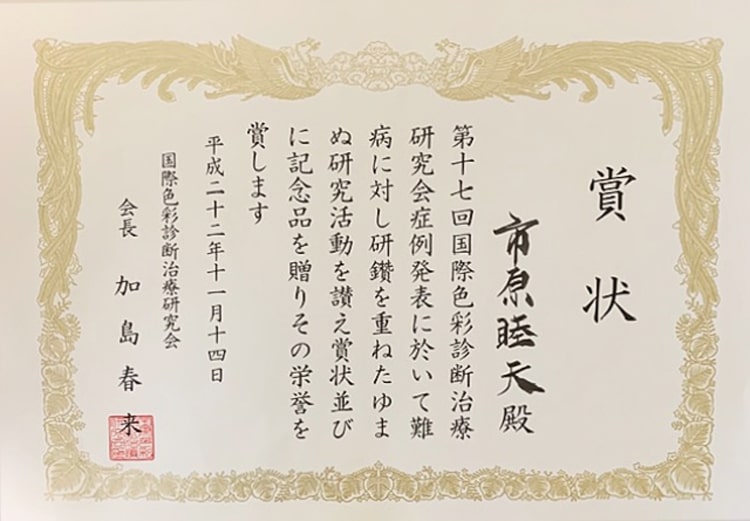 賞状
市原睦天殿
第十七回国際色彩診断治療
研究会症例発表に於いて難
病に対し研鑽を重ねたゆま
ぬ研究活動を讃え賞状並び
に記念品を贈りその栄誉を
賞します
平成二十二年十一月十四日
国際色彩診断治療研究会
会長 加島春来